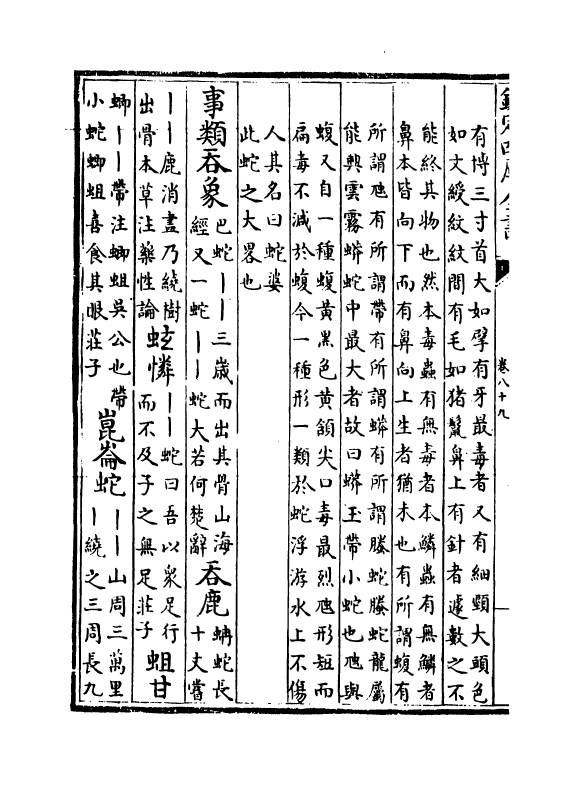 欽定四庫全書
卷八十九
有博三寸首大如擘有牙最毒者又有細頸大頭色
如文綬紋紋間有毛如豬鬣鼻上有針者遽數之不
能終其物也然本毒蟲有無毒者本鱗蟲有無鱗者
鼻本皆向下而有鼻向上生者猶未也有所謂蝮有
所謂虺有所謂帶有所謂蟒有所謂螣蛇螣蛇龍屬
能興雲霧蟒蛇中最大者故曰蟒玉帶小蛇也虺與
蝮又自一種蝮黄黒色黄頷尖口毒最烈虺形短而
扁毒不減於蝮今一種形一類於蛇浮游水上不傷
人其名曰蛇婆
此蛇之大畧也
事類吞象巴蛇丨丨三歲而出其骨山海經又一蛇丨丨蛇大若何楚辭吞鹿蚺蛇長十丈嘗
丨丨鹿消盡乃繞樹出骨本草注藥性論蚿憐丨丨蛇曰吾以衆足行而不及子之無足莊子蛆甘
蝍丨丨帶注蝍蛆吳公也帶小蛇蝍蛆喜食其眼莊子崑崙蛇丨丨山周三萬里丨繞之三周長九